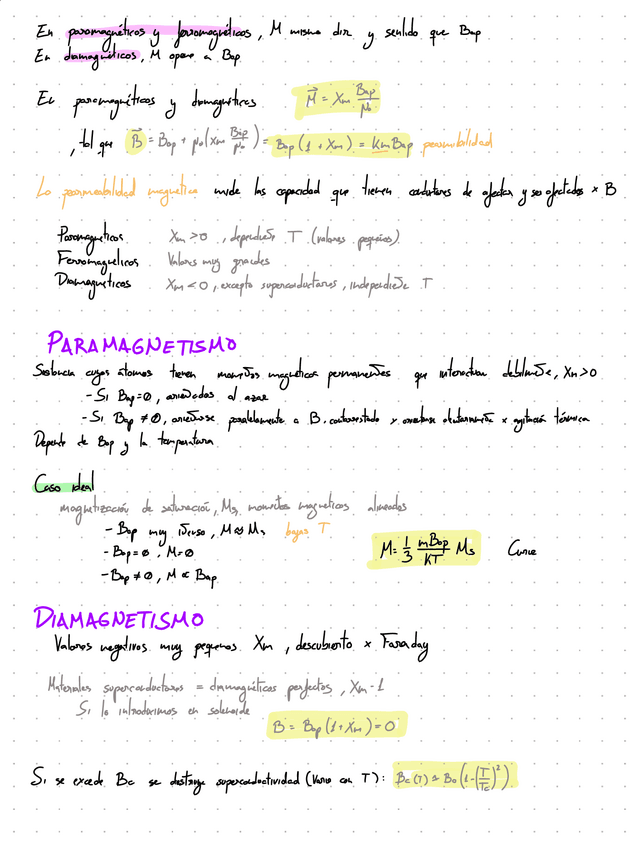 En paramagnéticos y ferromagnéticos, M misma dir y sentido que Bap
En diamagnéticos, M opone a Bap
En paramagnéticos y diamagnéticos M⃗ = Xm Bap/μ₀
, tal que B⃗ = Bap + μ₀(Xm Bap/μ₀) = Bap(1 + Xm) = Km Bap permeabilidad
La permeabilidad magnética mide las capacidad que tienen de afectar y ser afectados x B
Paramagnéticos Xm > 0, depende T (valores pequeños)
Ferromagnéticos Valores muy grandes
Diamagnéticos Xm < 0, excepto superconductores, independiente T
PARAMAGNETISMO
Sustancia cuyos átomos tienen momentos magnéticos permanentes que interactúan débilmente, Xm>0
- Si Bap=0, orientados al azar
- Si Bap ≠ 0, paralelamente a B, contrarrestado x x agitación térmica
Depende de Bap y la temperatura
Caso ideal
magnetización de saturación, Ms, momentos magnéticos alineados
- Bap muy intenso, M≈Ms bajas T
- Bap=0, M=0
- Bap ≠ 0, M ∝ Bap
M = 1/3 mBap/kT Ms Curie
DIAMAGNETISMO
Valores negativos muy pequeños Xm, descubierto x Faraday
Materiales superconductores = diamagnéticos perfectos, Xm-1
Si lo introducimos en solenoide
B = Bap(1+Xm) = 0
Si se excede Bc se destruye superconductividad (Varia con T): Bc(T) ≈ B₀(1-(T/Tc)²)